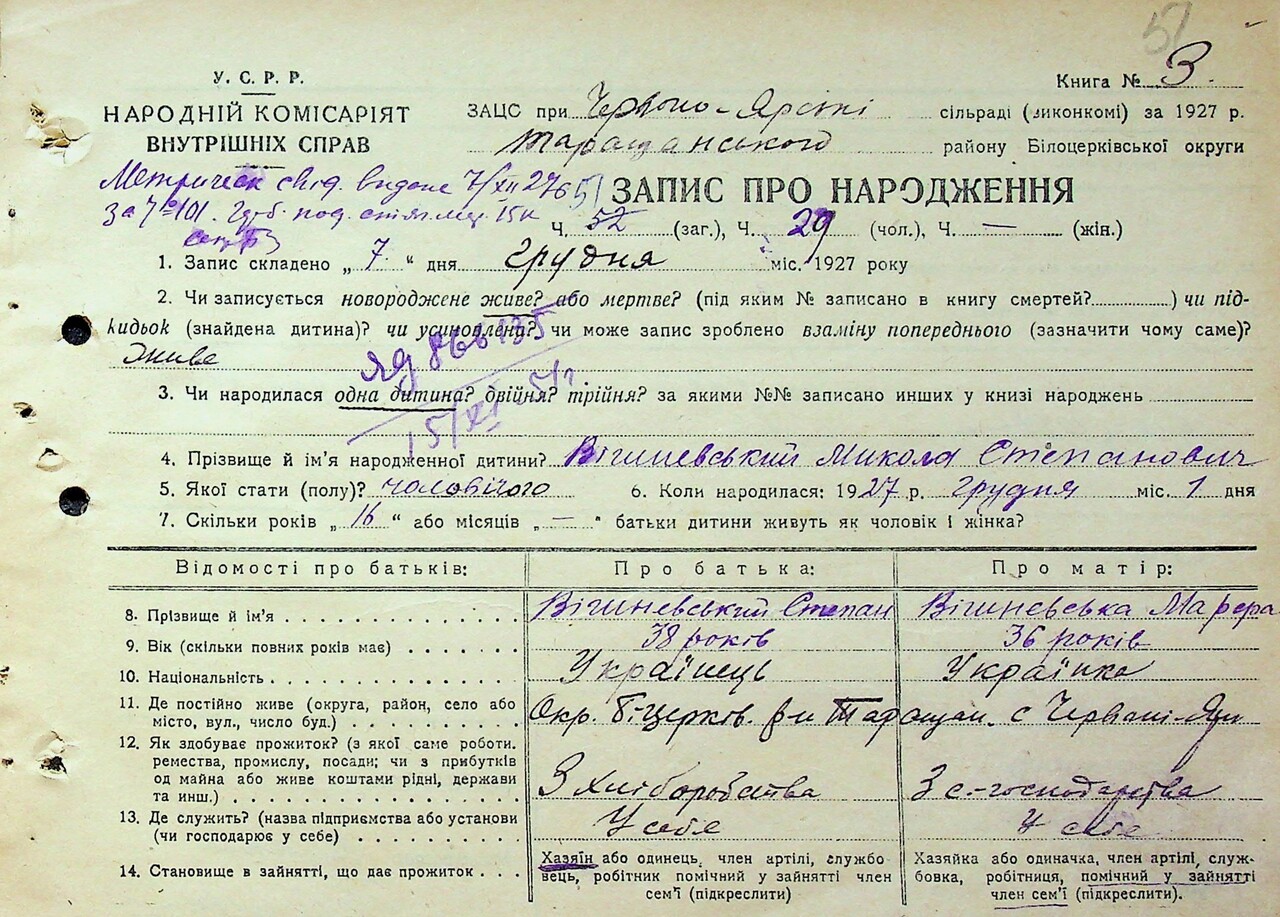 51
У. С. Р. Р.
НАРОДНІЙ КОМІСАРІЯТ
ВНУТРІШНІХ СПРАВ
Книга № 3.
ЗАЦС при Червоно-Ярські сільраді (виконкомі) за 1927 р.
Таращанського району Білоцерківської округи
Метрическ свід. видане 7/XII 27
за № 101.
ЗАПИС ПРО НАРОДЖЕННЯ
51
Ч. 52 (заг.), Ч. 29 (чол.), Ч. — (жін.)
1. Запис складено „ 7 “ дня грудня міс. 1927 року
2. Чи записується новороджене живе? або мертве? (під яким № записано в книгу смертей? ) чи під-
кидьок (знайдена дитина)? чи усиновлена? чи може запис зроблено взаміну попереднього (зазначити чому саме)?
живе
3. Чи народилася одна дитина? двійня? трійня? за якими №№ записано инших у книзі народжень
4. Прізвище й ім'я народженної дитини? Вішневський Микола Степанович
5. Якої стати (полу)? чоловічого 6. Коли народилася: 1927 р. грудня міс. 1 дня
7. Скільки років „ 16 “ або місяців „ — “ батьки дитини живуть як чоловік і жінка?
Відомості про батьків: Про батька: Про матір:
8. Прізвище й ім'я Вішневський Степан Вішневська
9. Вік (скільки повних років має) 38 років 36 років
10. Національність Українець Українка
11. Де постійно живе (округа, район, село або
місто, вул., число буд.) Окр. Б-Церків. р-н Таращан. с Червоні-Яри
12. Як здобуває прожиток? (з якої саме роботи.
ремества, промислу, посади; чи з прибутків
од майна або живе коштами рідні, держави
та инш.) З хліборобства З с.-господарства
13. Де служить? (назва підприємства або установи
(чи господарює у себе) У себе У себе
14. Становище в зайнятті, що дає прожиток
Хазяїн або одинець, член артілі, службо
вець, робітник помічний у зайнятті член
сем'ї (підкреслити)
Хазяйка або одиначка, член артілі, служ-
бовка, робітниця, помічний у зайнятті
член сем'ї (підкреслити).